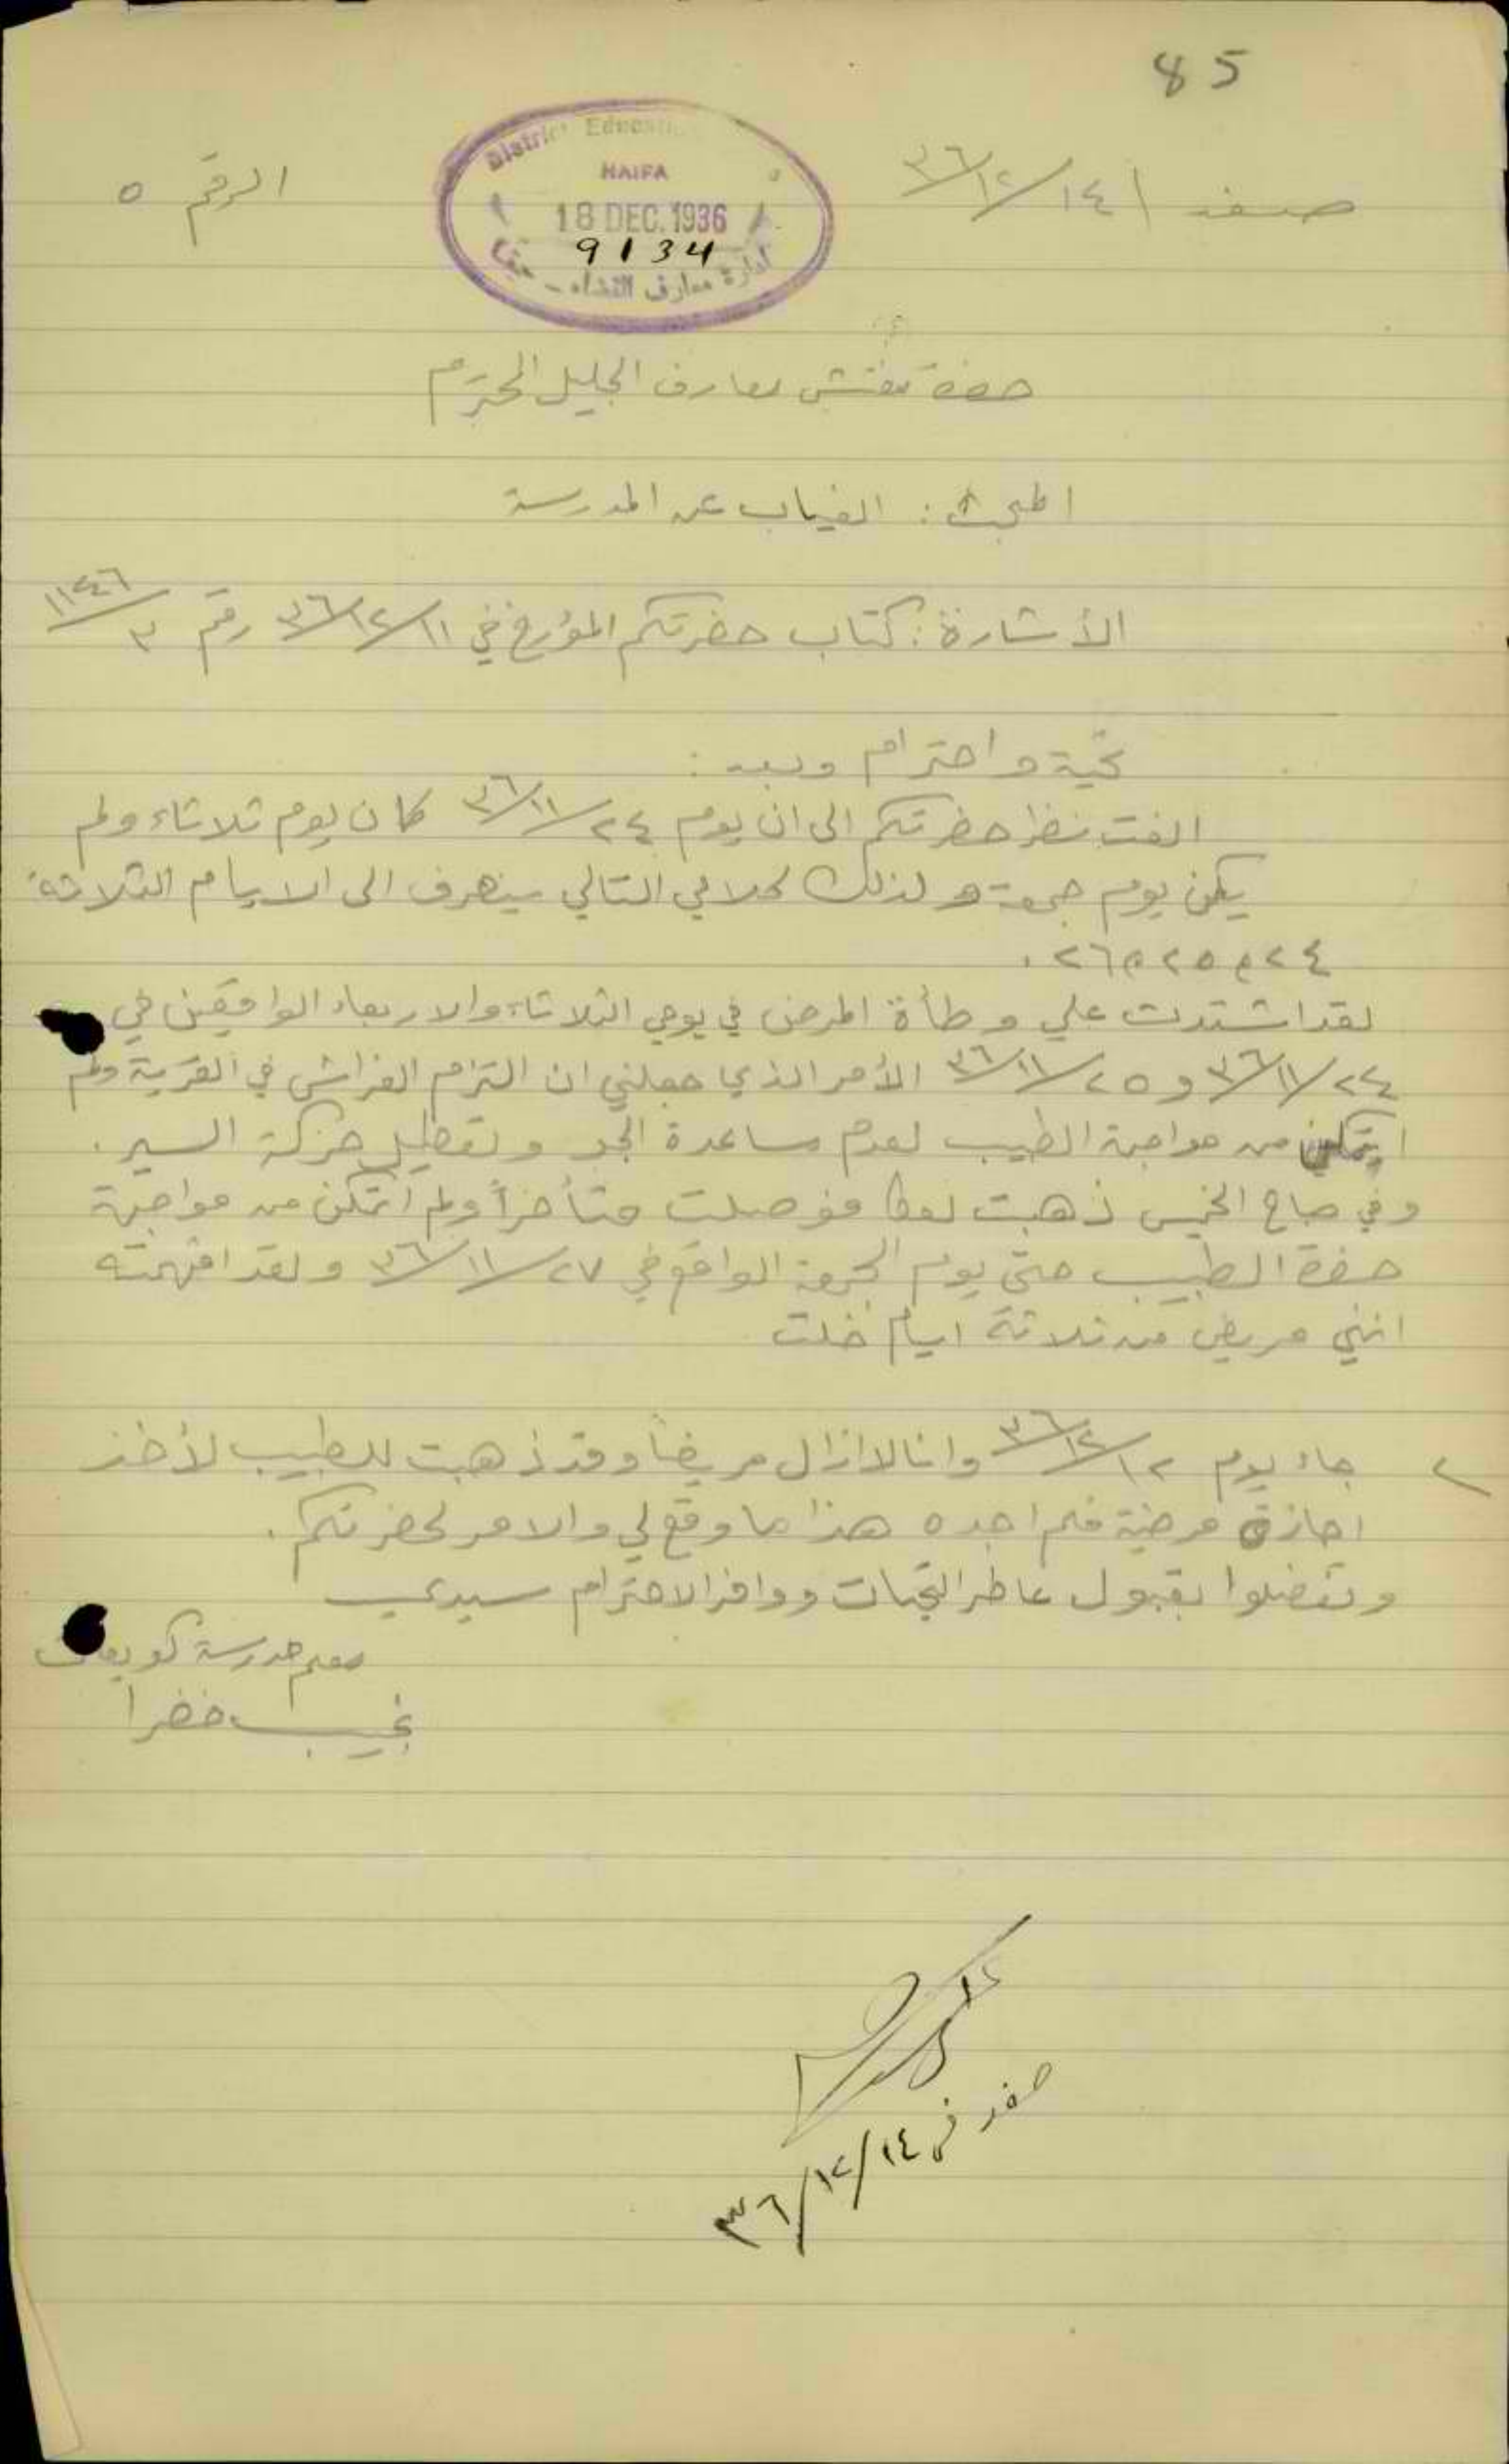 85
صفد ١٤/١٢/٣٦
الرقم ٥
District Education
HAIFA
18 DEC. 1936
9134
ادارة معارف القضاء - حيفا
حضرة مفتش معارف الجليل المحترم
المبحث: الغياب عن المدرسة
الأشارة: كتاب حضرتكم المؤرخ في ١١/١٢/٣٦ رقم ٣/١١٢٤٦
تحية واحترام وبعد:
الفت نظر حضرتكم الى ان يوم ٢٤/١١/٣٦ كان يوم ثلاثاء ولم
يكن يوم جمعة ولذلك كلامي التالي سينصرف الى الايام الثلاثة
٢٤ و ٢٥ و ٢٦.
لقد اشتدت علي وطأة المرض في يومي الثلاثاء والاربعاء الواقعين في
٢٤/١١/٣٦ و ٢٥/١١/٣٦ الأمر الذي جعلني ان التزم الفراش في القرية ولم
اتمكن من مواجهة الطبيب لعدم مساعدة الجو وتعطيل حركة السير.
وفي صباح الخميس ذهبت لعكا فوصلت متأخراً ولم اتمكن من مواجهة
حضرة الطبيب حتى يوم الجمعة الواقع في ٢٧/١١/٣٦ ولقد افهمته
انني مريض من ثلاثة ايام خلت
٢ جاء يوم ١٢/١٢/٣٦ وانا لا ازال مريضاً وقد ذهبت للطبيب لأخذ
اجازة مرضية فلم اجده هذا ما وقع لي والامر لحضرتكم.
وتفضلوا بقبول عاطر التحيات ووافر الاحترام سيدي
معلم مدرسة كويكات
نجيب خضرا
صفد في ١٤/١٢/٣٦